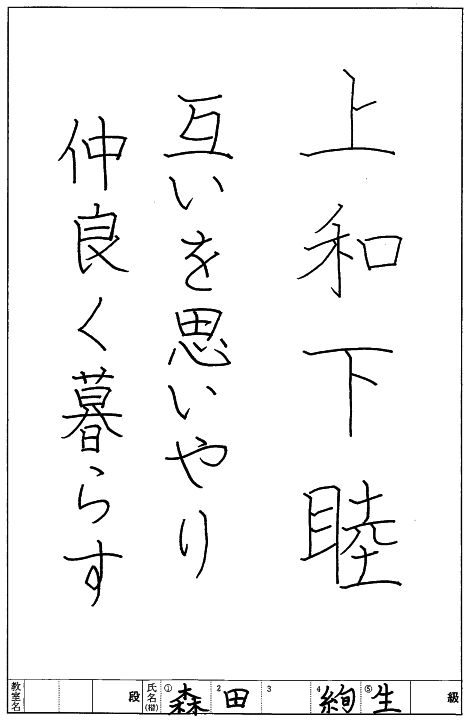 上和下睦
互いを思いやり
仲良く暮らす
教室名 段 氏名(楷) ① 森 2 田 3 4 絢 ⑤ 生 級